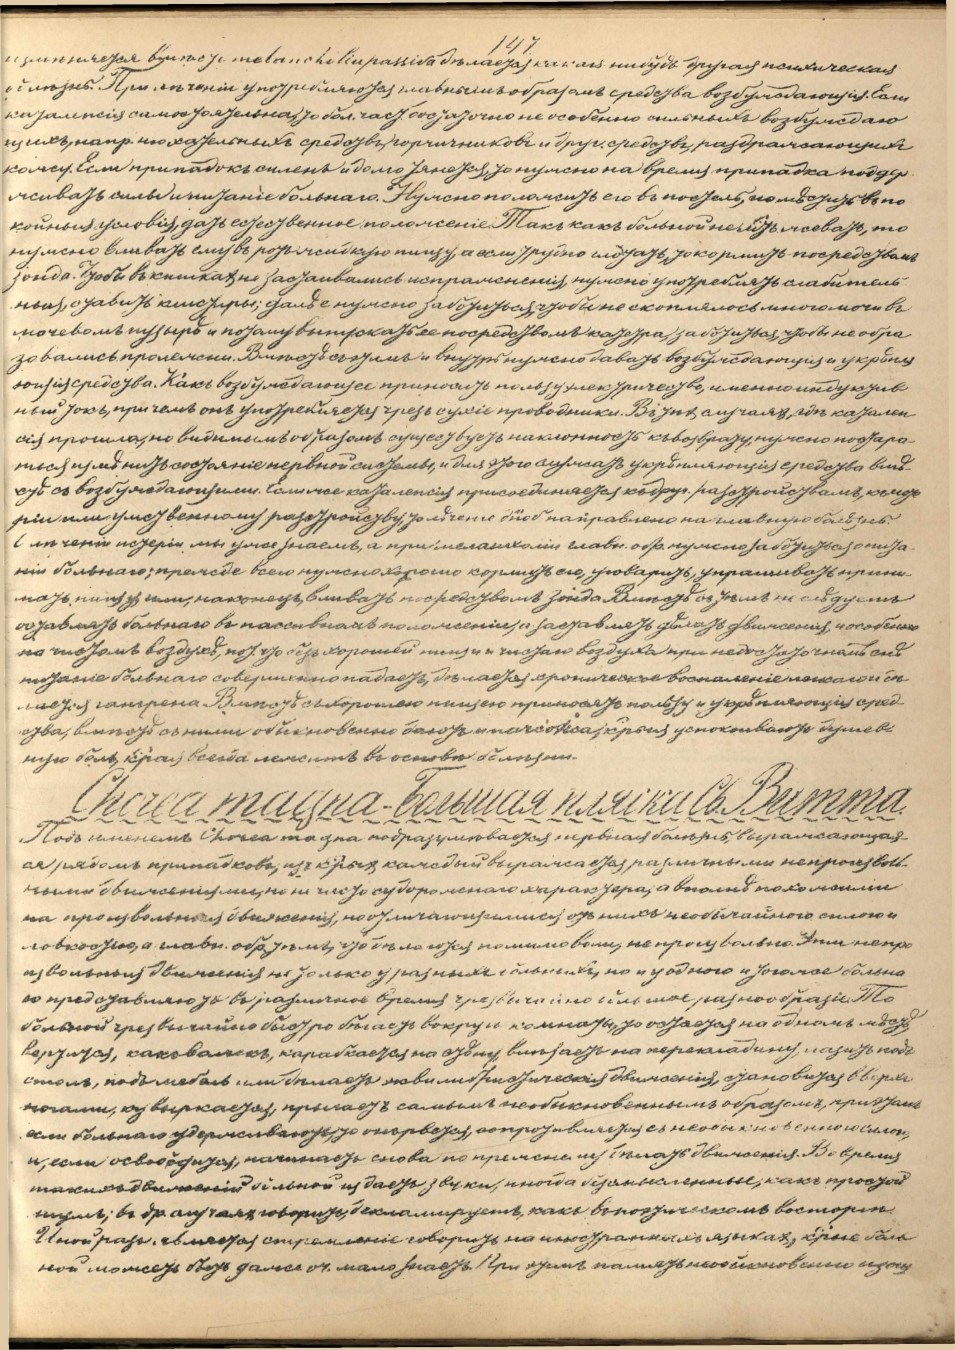 147.
измѣняется вмѣсто melancholia passiva дѣлается какая нибудь другая психическая
болѣзнь. При лѣченіи употребляются главнымъ образомъ средства возбуждающія. Если
каталепсія самостоятельная, то бол. част. достаточно не особенно сильныхъ возбуждаю
щихъ, напр. нюхательныхъ средствъ, горчичниковъ и друг. средствъ, раздражающихъ
кожу. Если припадокъ силенъ и долго тянется, то нужно на время припадка поддер
живать силы и питаніе больнаго. Нужно положить его въ постель, помѣстить въ по
койныя условія, дать естественное положеніе. Такъ какъ больной не жевать, то
нужно вливать ему въ ротъ жидкую пищу, а если трудно глотать, то кормить посредствомъ
зонда. Чтобы въ кишкахъ не застаивались испражненія, нужно употреблять слабитель
ныя, ставить клистиры; далѣе нужно заботиться, чтобы не скоплялось много мочи въ
мочевомъ пузырѣ и потому выпускать ее посредствомъ катетра, заботиться, чтобы не обра
зовались пролежни. Вмѣстѣ съ этимъ и внутрь нужно давать возбуждающія и укрѣпля
ющія средства. Какъ возбуждающее приноситъ пользу электричество, именно индуктив
ный токъ, причемъ онъ употребляется чрезъ сухіе проводники. Въ тѣхъ случаяхъ, гдѣ каталеп
сія прошла, но видимымъ образомъ существуетъ наклонность къ возврату, нужно постара
ться измѣнить состояніе нервной системы, и для этого служатъ укрѣпляющія средства вмѣ
стѣ съ возбуждающими. Если же каталепсія присоединяется къ друг. разстройствамъ, къ исте
ріи или умственному разстройству, то лѣченіе д.б. направлено на главную болѣзнь.
О лѣченіи истеріи мы уже знаемъ, а при меланхоліи главн. обр. нужно заботиться о пита
ніи больнаго; прежде всего нужно хорошо кормить его, уговарить, упрашивать прини
мать пищу или, наконецъ, вливать посредствомъ зонда. Вмѣстѣ съ тѣмъ не слѣдуетъ
оставлять больнаго въ пассивномъ положеніи, а заставлять дѣлать движенія, и особенно
на чистомъ воздухѣ, пот. что безъ хорошей пищи и чистаго воздуха при недостаточномъ
питаніе больнаго совершенно падаетъ, дѣлается хроническое воспаленіе легкаго и дѣ
лается гангрена. Вмѣстѣ съ хорошею пищею приносятъ пользу и укрѣпляющія сред
ства, вмѣстѣ съ ними обыкновенно даютъ и narcotica, крыя успокоиваютъ душев
ную боль, края всегда лежитъ въ основѣ болѣзни.
Chorea magna - Большая пляска Св. Витта.
Подъ именемъ Chorea magna подразумѣвается нервная болѣзнь, выражающая
ся рядомъ припадковъ, изъ крыхъ каждый выражается различными непроизволь
ными движеніями, но не чисто судорожнаго характера, а вполнѣ похожими
на произвольныя движенія, но отличающимися отъ нихъ необычайною силою и
ловкостью, а главн. обр. тѣмъ, что дѣлаются помимо воли, непроизвольно. Эти непро
извольныя движенія не только у разныхъ больныхъ, но и у одного и того же больна
го представляютъ въ различное время чрезвычайно большое разнообразіе. То
больной чрезвычайно быстро бѣгаетъ вокругъ комнаты, то остается на одномъ мѣстѣ,
вертится, какъ волчекъ, карабкается на стѣну, влѣзаетъ на перекладину, лазитъ подъ
столъ, подъ мебель или дѣлаетъ эквилибристическія движенія, становится вверхъ
ногами, кувыркается, прыгаетъ самымъ необыкновеннымъ образомъ, при этомъ
если больнаго удерживаютъ, то онъ рвется, сопротивляется съ необыкновенною силою,
и, если освободится, начинаетъ снова по прежнему дѣлать движенія. Во время
такихъ движеній больной издаетъ звуки, иногда безсмысленные, какъ простой
шумъ; въ др. случаяхъ говоритъ, декламируетъ, какъ въ поэтическомъ восторгѣ.
Иной разъ является стремленіе говорить на иностранныхъ языкахъ, крые боль
ной можетъ быть даже оч. мало знаетъ. При этомъ память необыкновенно изощ